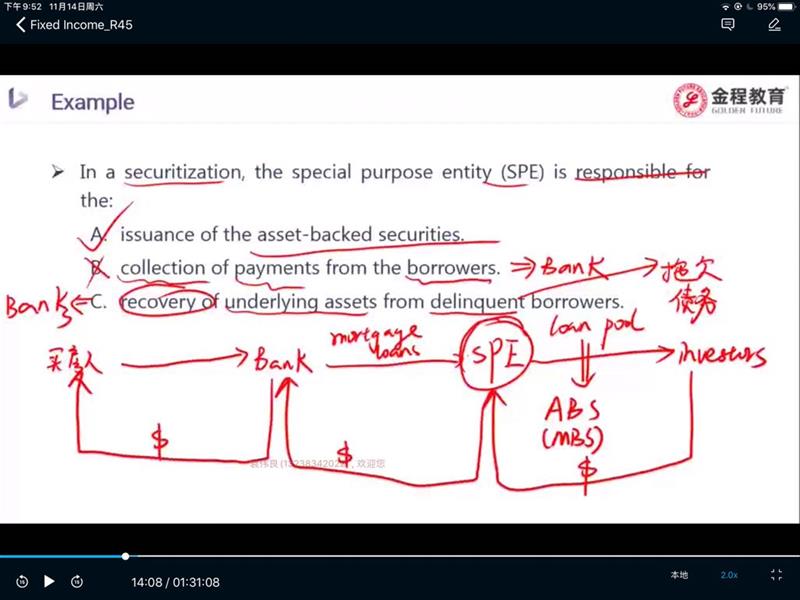 下午9:52 11月14日周六
95%
Fixed Income_R45
Example
金程教育
GOLDEN FUTURE
In a securitization, the special purpose entity (SPE) is responsible for
the:
A. issuance of the asset-backed securities.
B. collection of payments from the borrowers. ⇒ Bank → 拖欠
债务
Bank ⇐ C. recovery of underlying assets from delinquent borrowers.
买房人 → Bank mortgage loans → SPE loan pool → investors
ABS
(MBS)
$ $ $
欢迎您
15 15 14:08 / 01:31:08 本地 2.0x